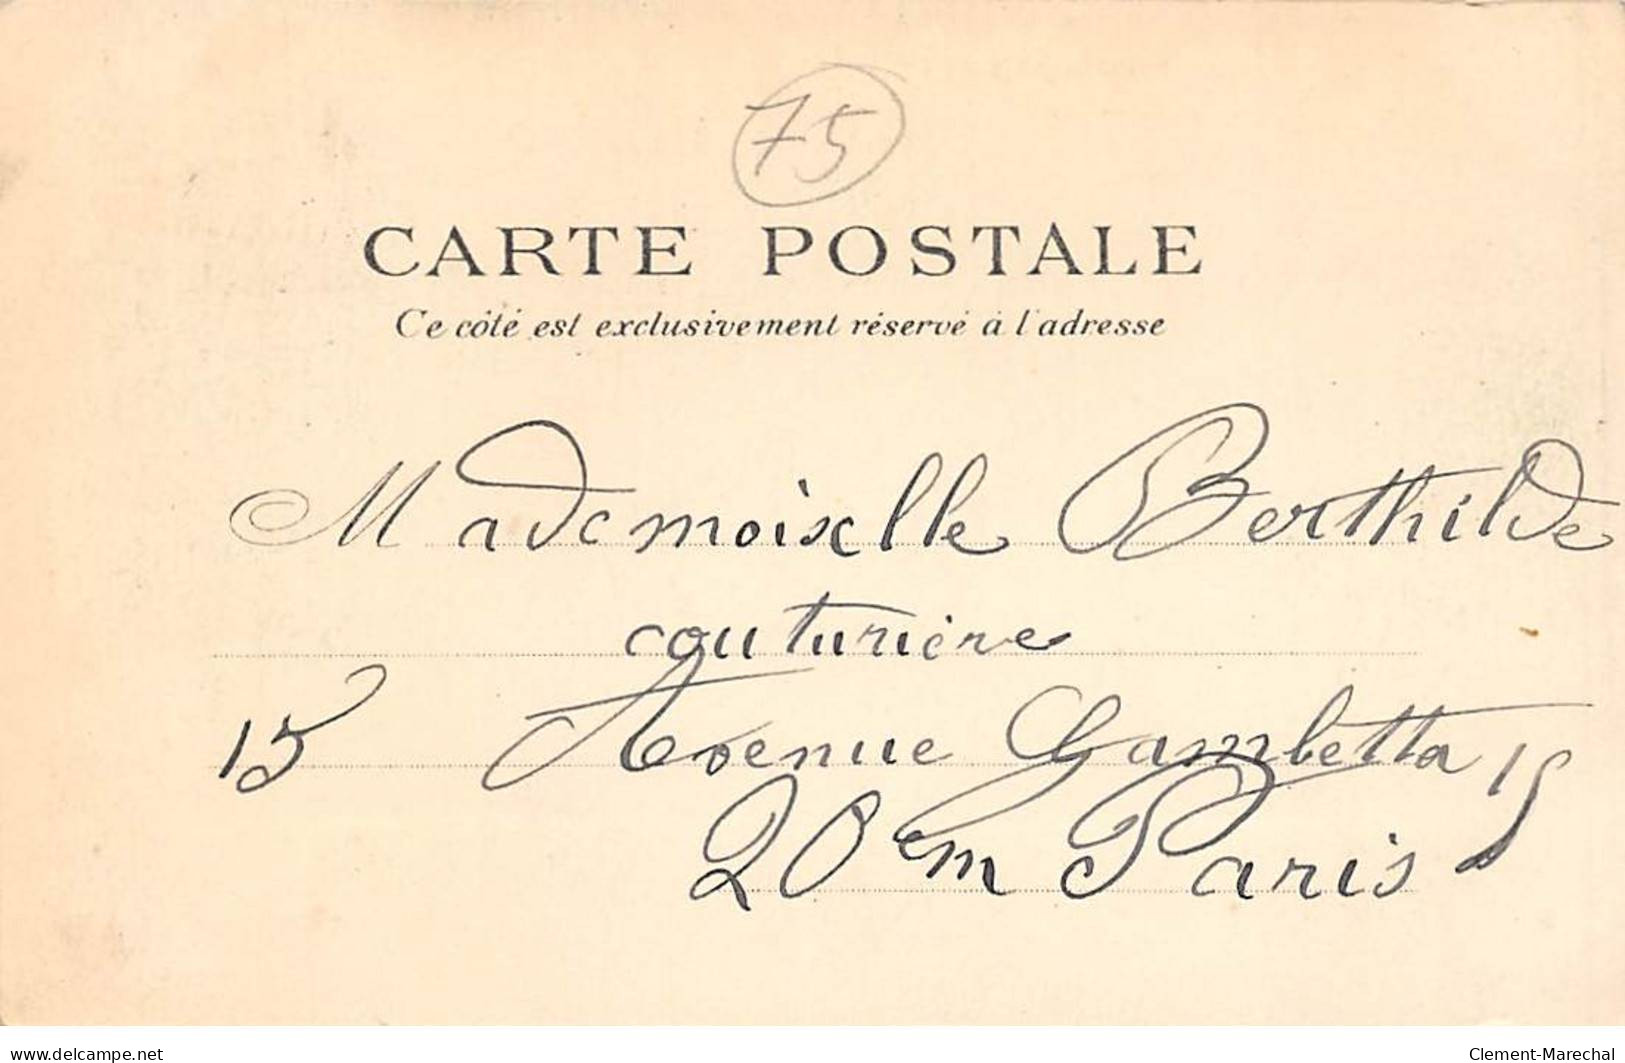 75
CARTE POSTALE
Ce côté est exclusivement réservé à l'adresse
Mademoiselle Berthilde
couturière
15 Avenue Gambetta 15
20em Paris
www.delcampe.net
Clement-Marechal